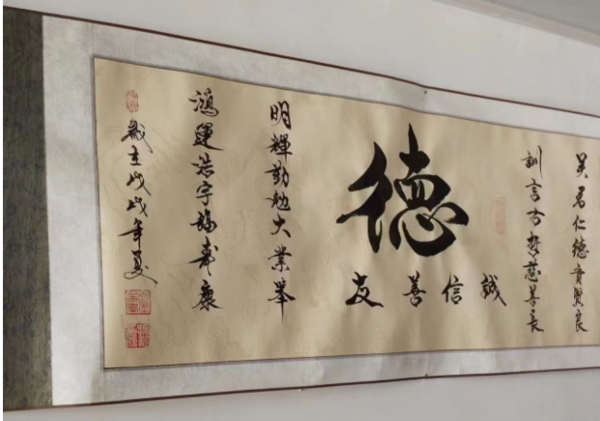 吴君仁德育贤良
訓言古哲慈善長
德
誠信善友
明輝勤勉大業举
鴻運浩宇福壽康
歲在戊戌年夏